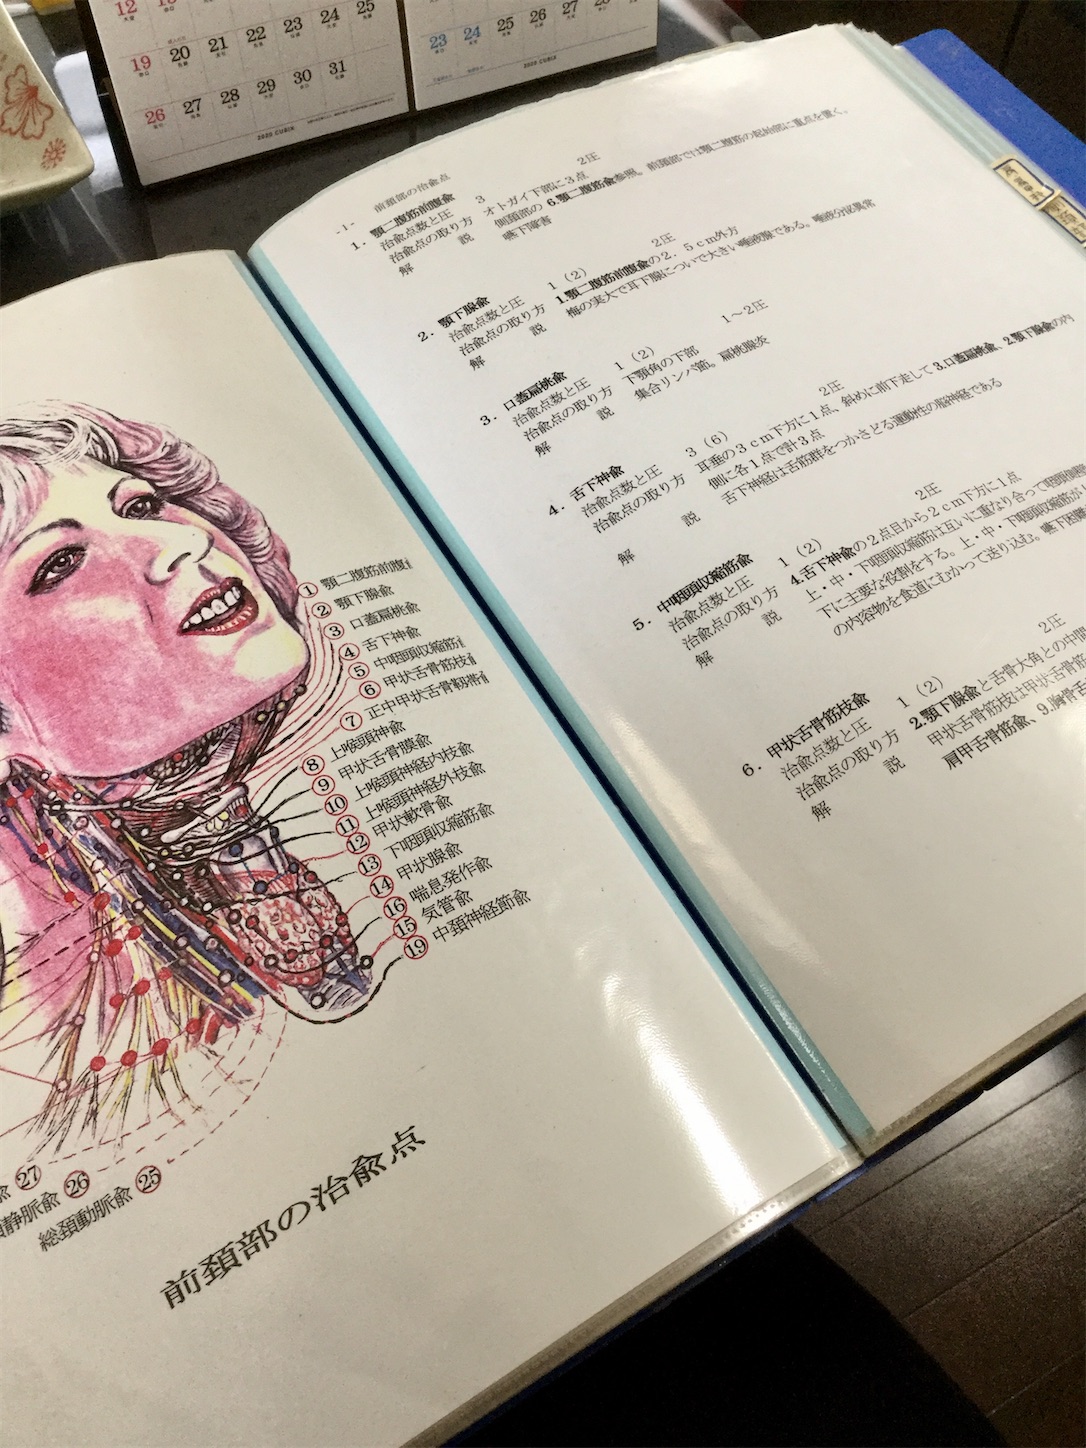 12
22 23 24 25
19 20 21 22 23 24 25
26 27 28 29 30 31
2020 CUBIX
25 26 27 28
23 24 25 26 27 28
2020 CUBIX
①顎二腹筋前腹
②顎下腺兪
③口蓋扁桃兪
④舌下神兪
⑤中咽頭収縮筋
⑥甲状舌骨筋枝
⑦正中甲状舌骨靱帯
⑧上喉頭神兪
⑨甲状舌骨膜兪
⑩上喉頭神経内枝兪
⑪上喉頭神経外枝兪
⑫甲状軟骨兪
⑬下咽頭収縮筋兪
⑭甲状腺兪
⑯喘息発作兪
⑮気管兪
⑲中頚神経節兪
兪㉗
静脈兪㉖
総頚動脈兪㉕
前頚部の治兪点
-1-　前頚部の治兪点
1．顎二腹筋前腹兪
治兪点数と圧　3　2圧
治兪点の取り方　オトガイ下部に3点
解　説　側頚部の6.顎二腹筋兪参照。前頚部では顎二腹筋の起始部に重点を置く。
嚥下障害
2．顎下腺兪
治兪点数と圧　1（2）　2圧
治兪点の取り方　1.顎二腹筋前腹兪の2．5cm外方
解　説　梅の実大で耳下腺についで大きい唾液腺である。唾液分泌異常
3．口蓋扁桃兪
治兪点数と圧　1（2）　1〜2圧
治兪点の取り方　下顎角の下部
解　説　集合リンパ節。扁桃腺炎
4．舌下神兪
治兪点数と圧　3（6）　2圧
治兪点の取り方　耳垂の3cm下方に1点、斜めに前下走して3.口蓋扁桃兪、2.顎下腺兪の内
側に各1点で計3点
解　説　舌下神経は舌筋群をつかさどる運動性の脳神経である
5．中咽頭収縮筋兪
治兪点数と圧　1（2）　2圧
治兪点の取り方　4.舌下神兪の2点目から2cm下方に1点
解　説　上・中・下咽頭収縮筋は互いに重なり合って咽頭
下に主要な役割をする。上・中・下咽頭収縮筋が
の内容物を食道にむかって送り込む。嚥下困難
6．甲状舌骨筋枝兪
治兪点数と圧　1（2）　2圧
治兪点の取り方　2.顎下腺兪と舌骨大角との中間
解　説　甲状舌骨筋枝は甲状舌骨筋
肩甲舌骨筋兪、9.胸骨舌